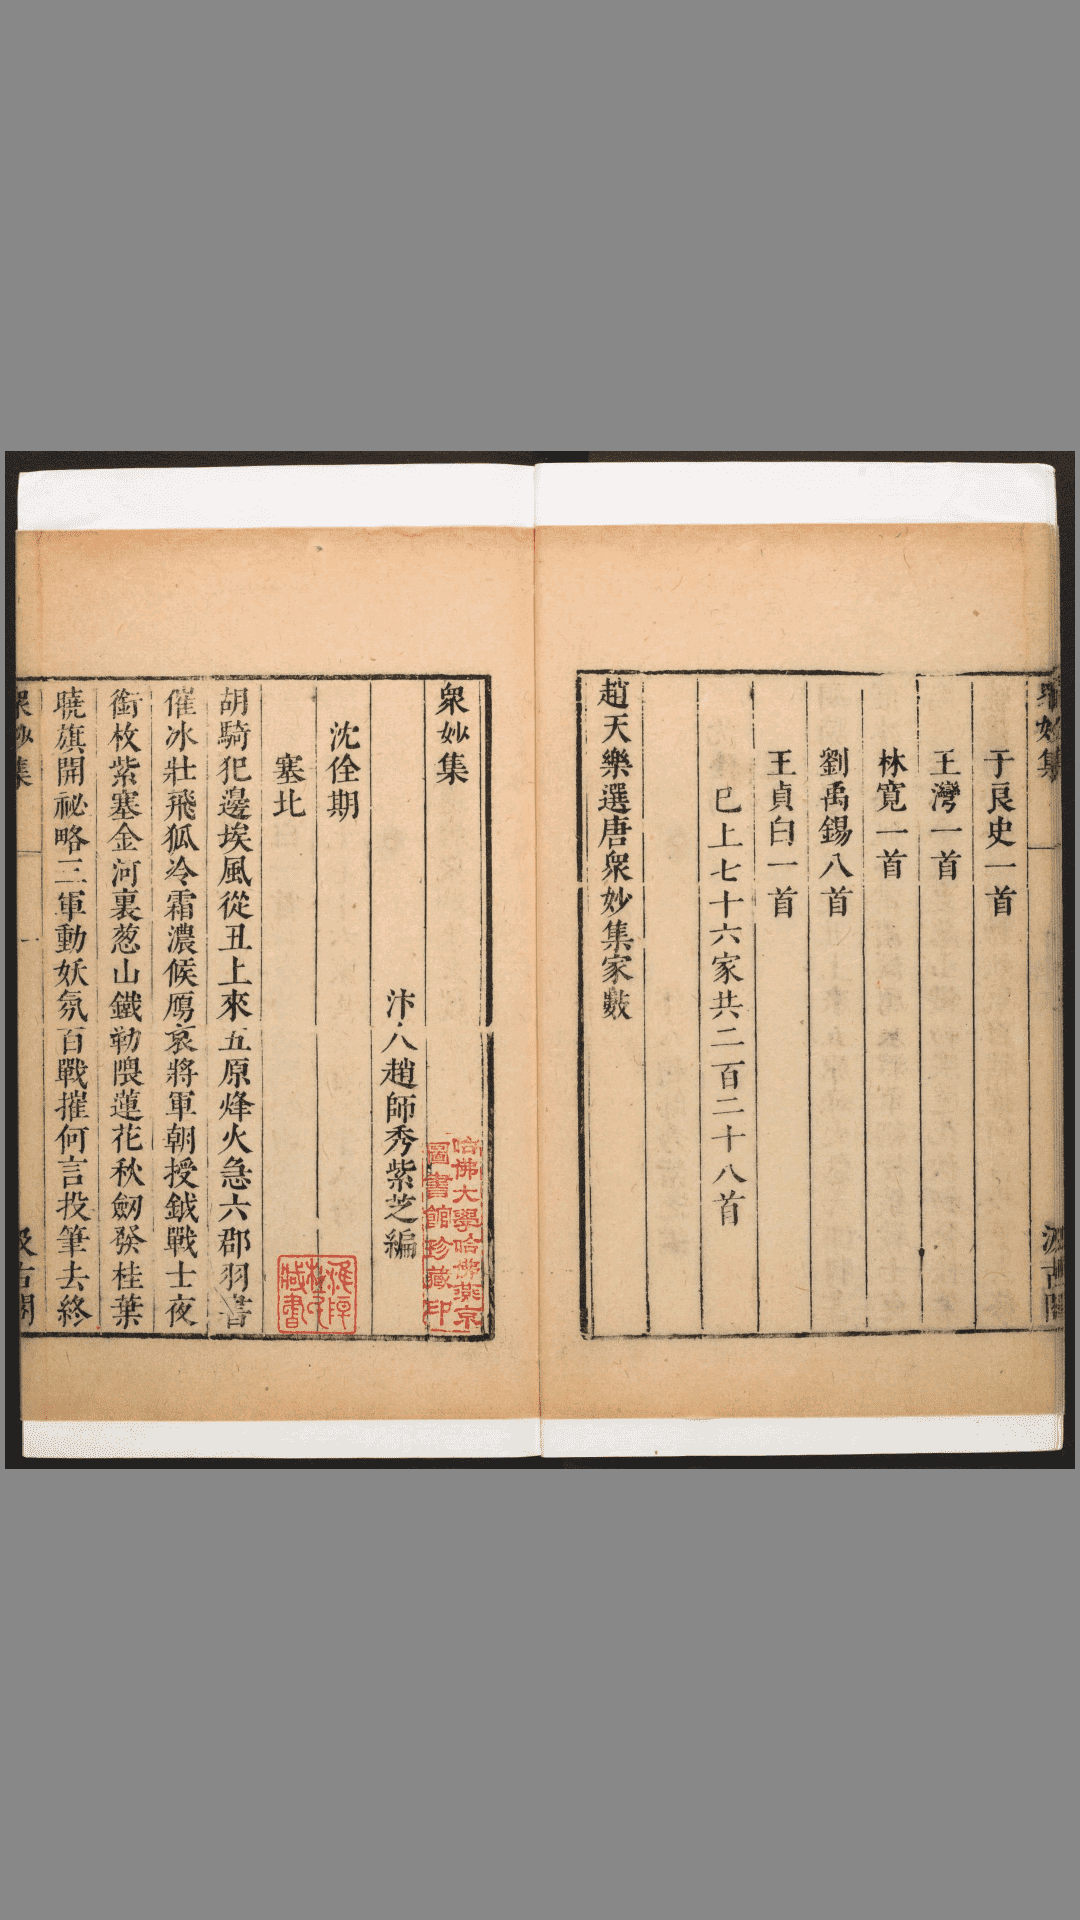 衆妙集
汲古閣
于良史一首
王灣一首
林寬一首
劉禹錫八首
王貞白一首
已上七十六家共二百二十八首
趙天樂選唐衆妙集家數
衆妙集
汴人趙師秀紫芝編
哈佛大學哈佛燕京
圖書館珍藏印
沈佺期
塞北
胡騎犯邊埃風從丑上來五原烽火急六郡羽書
催冰壯飛狐冷霜濃候鴈哀將軍朝授鉞戰士夜
銜枚紫塞金河裏葱山鐵勒隈蓮花秋劒發桂葉
曉旗開祕略三軍動妖氛百戰摧何言投筆去終
衆妙集
一
汲古閣